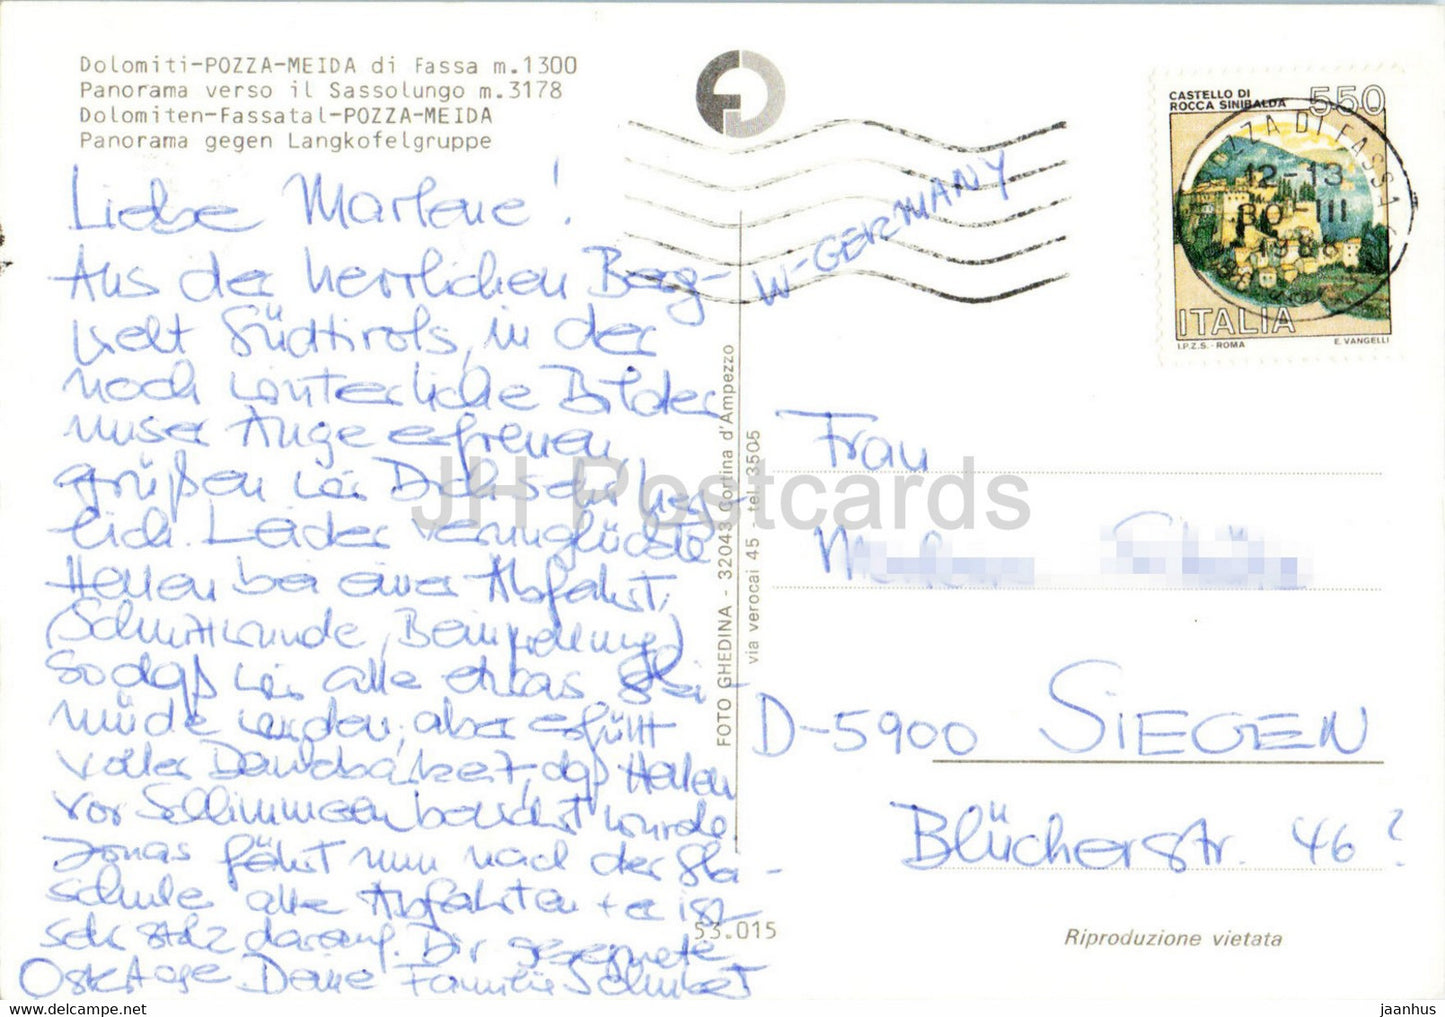 Dolomiti-POZZA-MEIDA di Fassa m.1300
Panorama verso il Sassolungo m.3178
Dolomiten-Fassatal-POZZA-MEIDA
Panorama gegen Langkofelgruppe
Liebe Marlene!
Aus der herrlichen Berg-
welt Südtirols, in der
noch winterliche Bilder
unser Auge erfreuen,
grüßen wir Dich sehr herz-
lich. Leider verunglückte
Hellen bei einer Abfahrt,
(Schnittwunde, Beinprellung)
sodaß wir alle etwas ski-
müde wurden, aber erfüllt
voller Dankbarkeit, daß Hellen
vor Schlimmeren bewahrt wurde.
Jonas fährt nun nach der Ski-
schule alle Abfahrten + er ist
sehr stolz darauf. Dir gesegnete
Ostertage. Deine Familie Schubert
W-GERMANY
CASTELLO DI
ROCCA SINIBALDA
550
ITALIA
I.P.Z.S. - ROMA
E. VANGELLI
ZZA DI FASSA
12-13
30-III
1988
FOTO GHEDINA - 32043 Cortina d'Ampezzo
via verocai 45 - tel.3505
Frau
D-5900 SIEGEN
Blücherstr. 46?
53.015
Riproduzione vietata
JH Postcards
www.delcampe.net
jaanhus